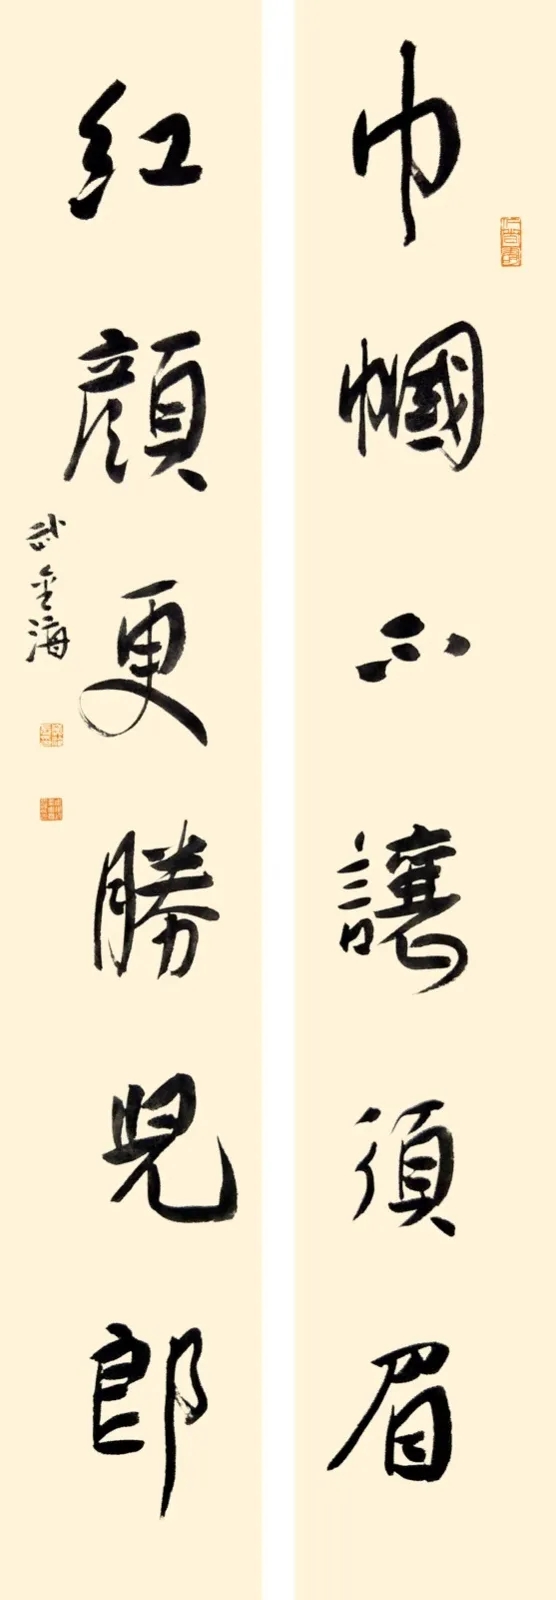 巾幗不讓須眉
紅顏更勝兒郎
武金海